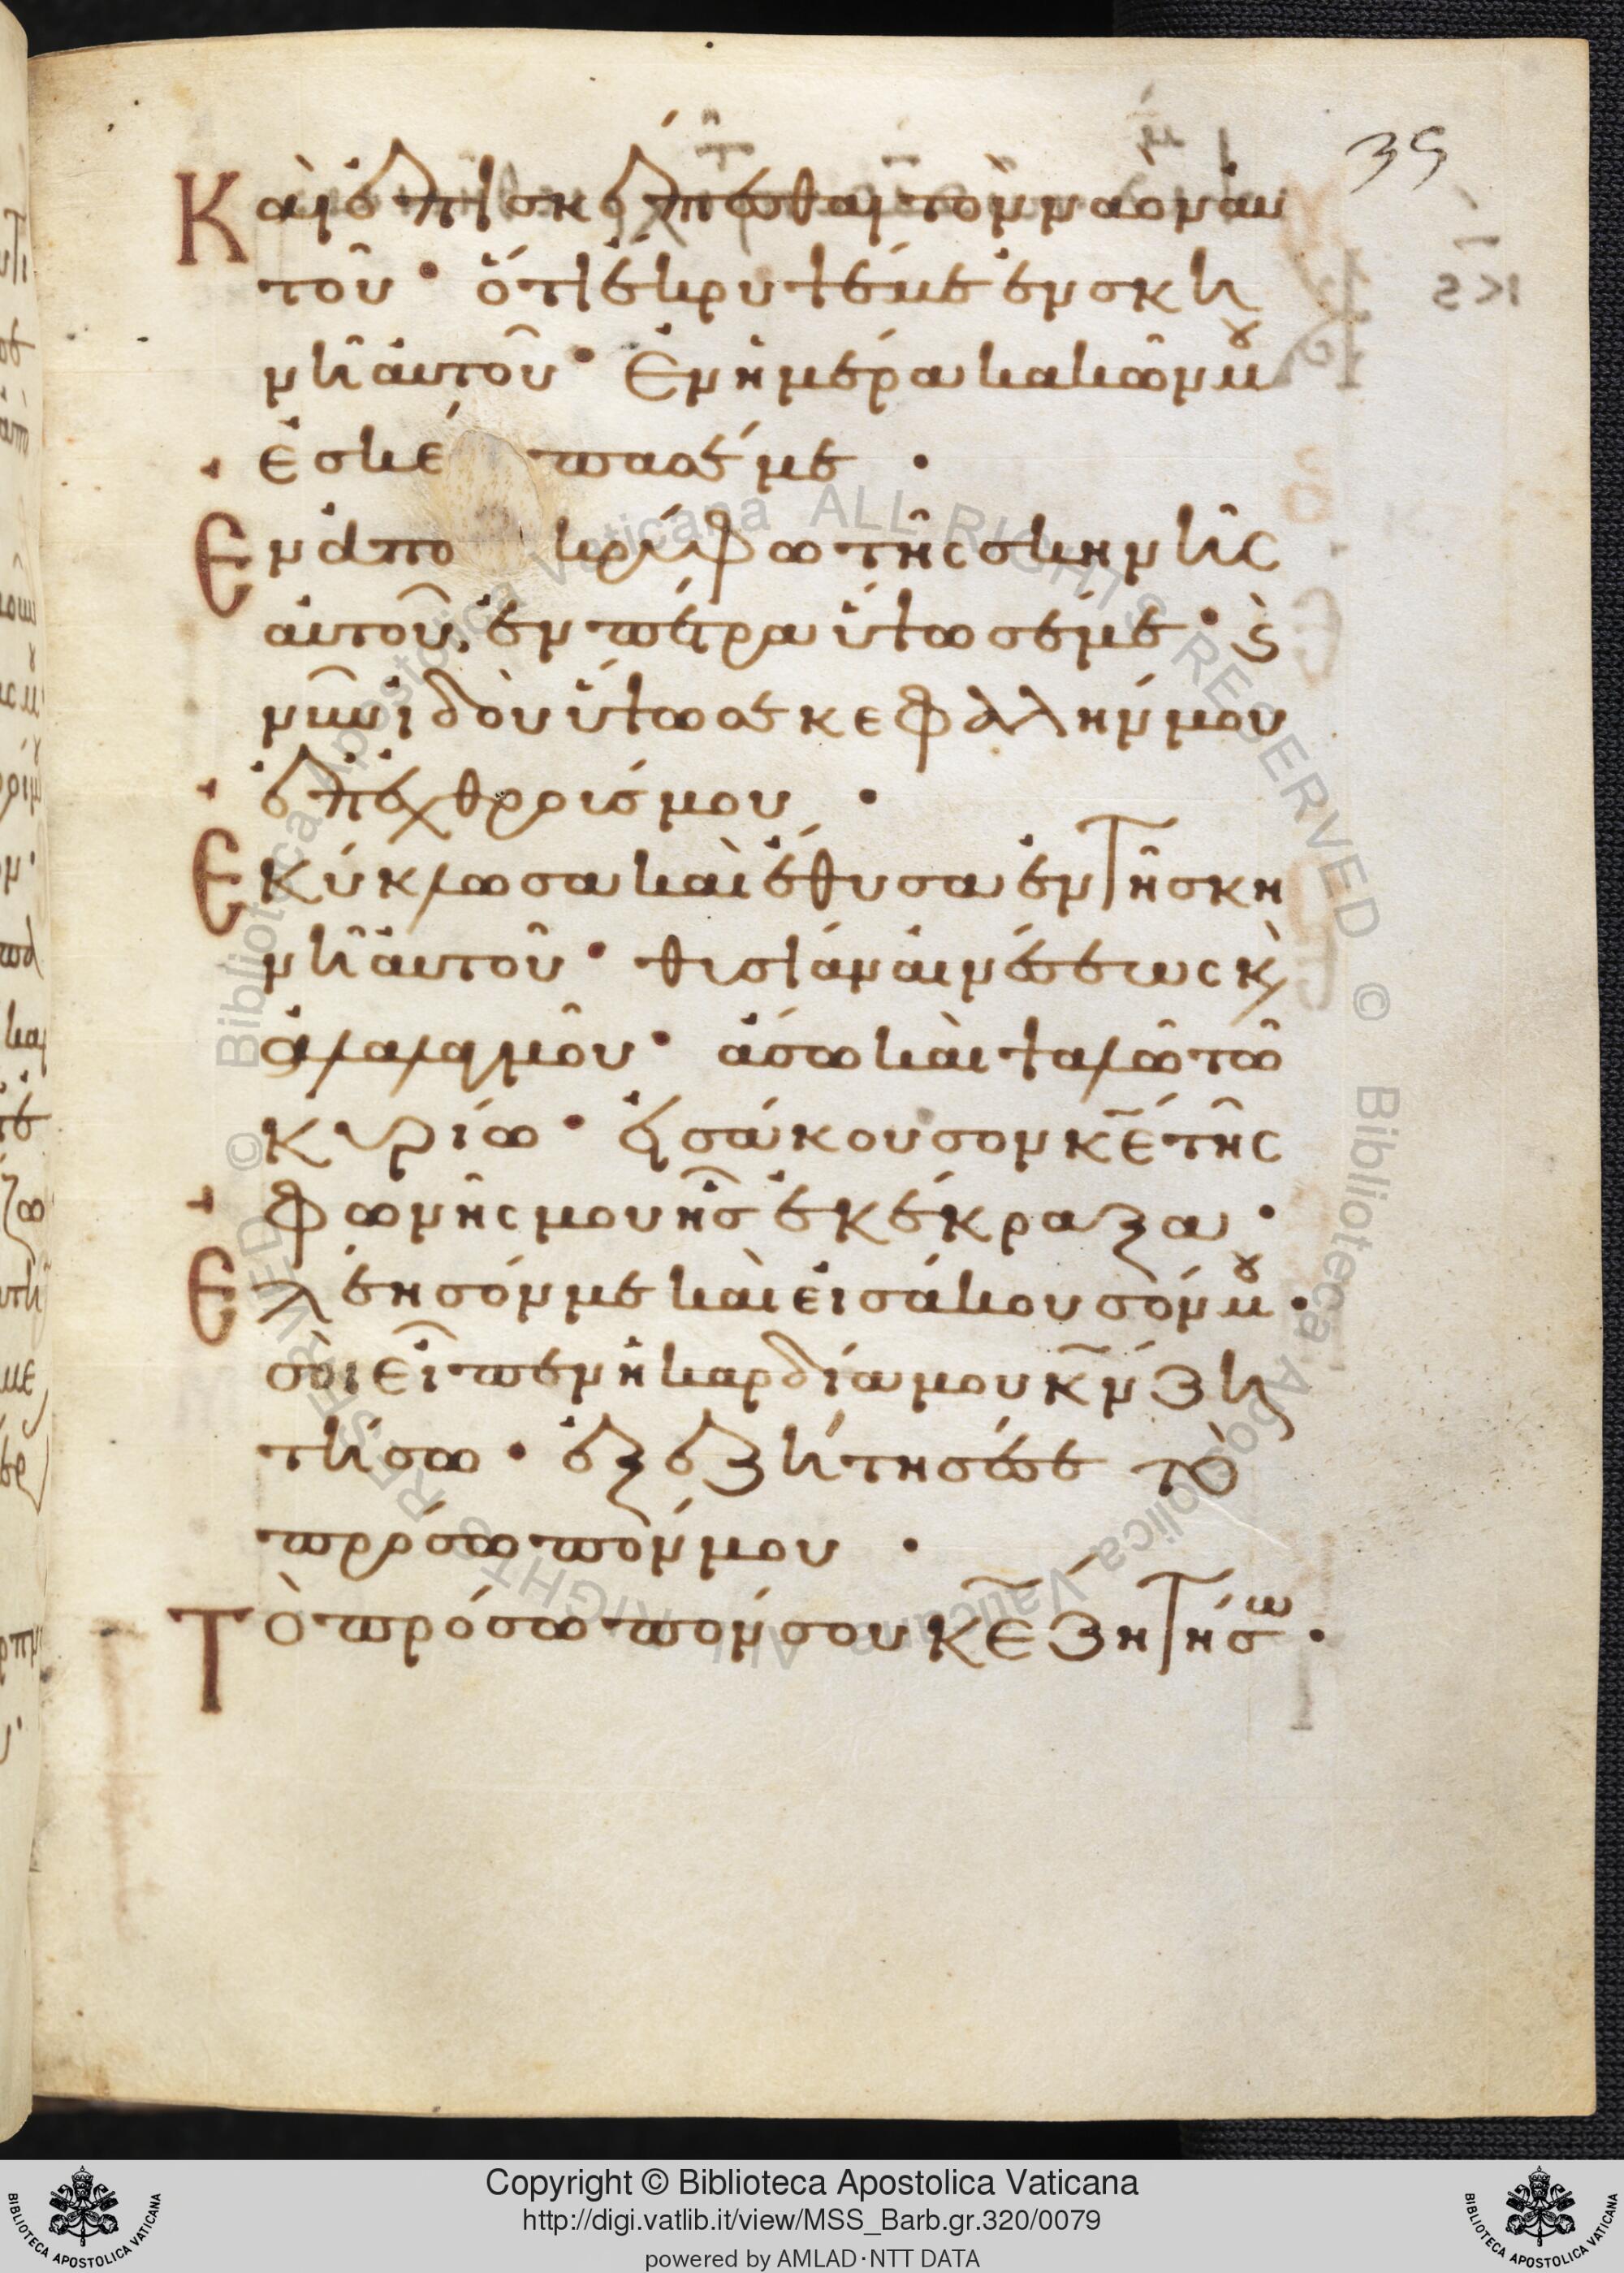 35
Καὶ ἐπισκέπτεσθαι τὸν ναὸν αὐ
τοῦ · ὅτι ἔκρυψέ με ἐν σκη
νῆ αὐτοῦ · Ἐν ἡμέρα κακῶν μου
ἐσκέ πασέ με ·
Ἐν ἀπο κρύφω τῆς σκηνῆς
αὐτοῦ, ἐν πέτρα ὕψωσέ με · κ̀
νῦν ἰδοὺ ὕψωσε κεφαλήν μου
ἐπ ἐχθρούς μου ·
Ἐκύκλωσα καὶ ἔθυσα ἐν τῆ σκη
νῆ αὐτοῦ · θυσίαν αἰνέσεως κ̀
ἀλαλαγμοῦ · ἄσω καὶ ψαλῶ τῶ
κυρίω · εἰσάκουσον κε τῆς
φωνῆς μου ἧς ἐκέκραξα ·
Ἐλέησόν με καὶ εἰσάκουσόν μου ·
σοὶ εἶπεν ἡ καρδία μου κν ζη
τήσω · ἐξεζήτησέ σε τὸ
πρόσωπόν μου ·
Τὸ πρόσωπόν σου κε ζητήσω ·
Copyright © Biblioteca Apostolica Vaticana
http://digi.vatlib.it/view/MSS_Barb.gr.320/0079
powered by AMLAD·NTT DATA
BIBLIOTECA APOSTOLICA VATICANA
BIBLIOTECA APOSTOLICA VATICANA